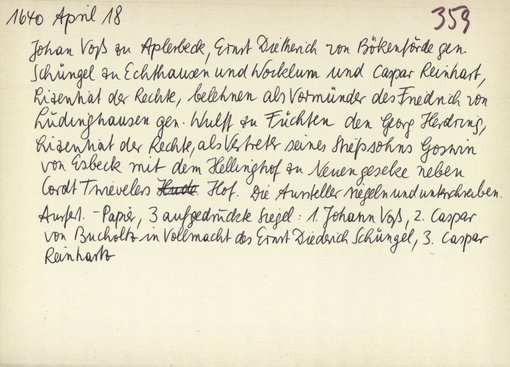 1640 April 18
359
Johan Voß zu Aplerbeck, Ernst Dietherich von Bökenförde gen.
Schüngel zu Echthausen und Wocklum und Caspar Reinhart,
Lizentiat der Rechte, belehnen als Vormünder des Friedrich von
Lüdinghausen gen. Wulff zu Füchten den Georg Herdring,
Lizentiat der Rechte, als Vertreter seines Stiefsohns Goswin
von Esbeck mit dem Hellinghof zu Neuengeseke neben
Cordt Trievelers Hof. Die Aussteller siegeln und unterschreiben.
Ausfert. - Papier, 3 aufgedrückte Siegel: 1. Johann Voß, 2. Caspar
von Bucholtz in Vollmacht des Ernst Diederich Schüngel, 3. Caspar
Reinhartz